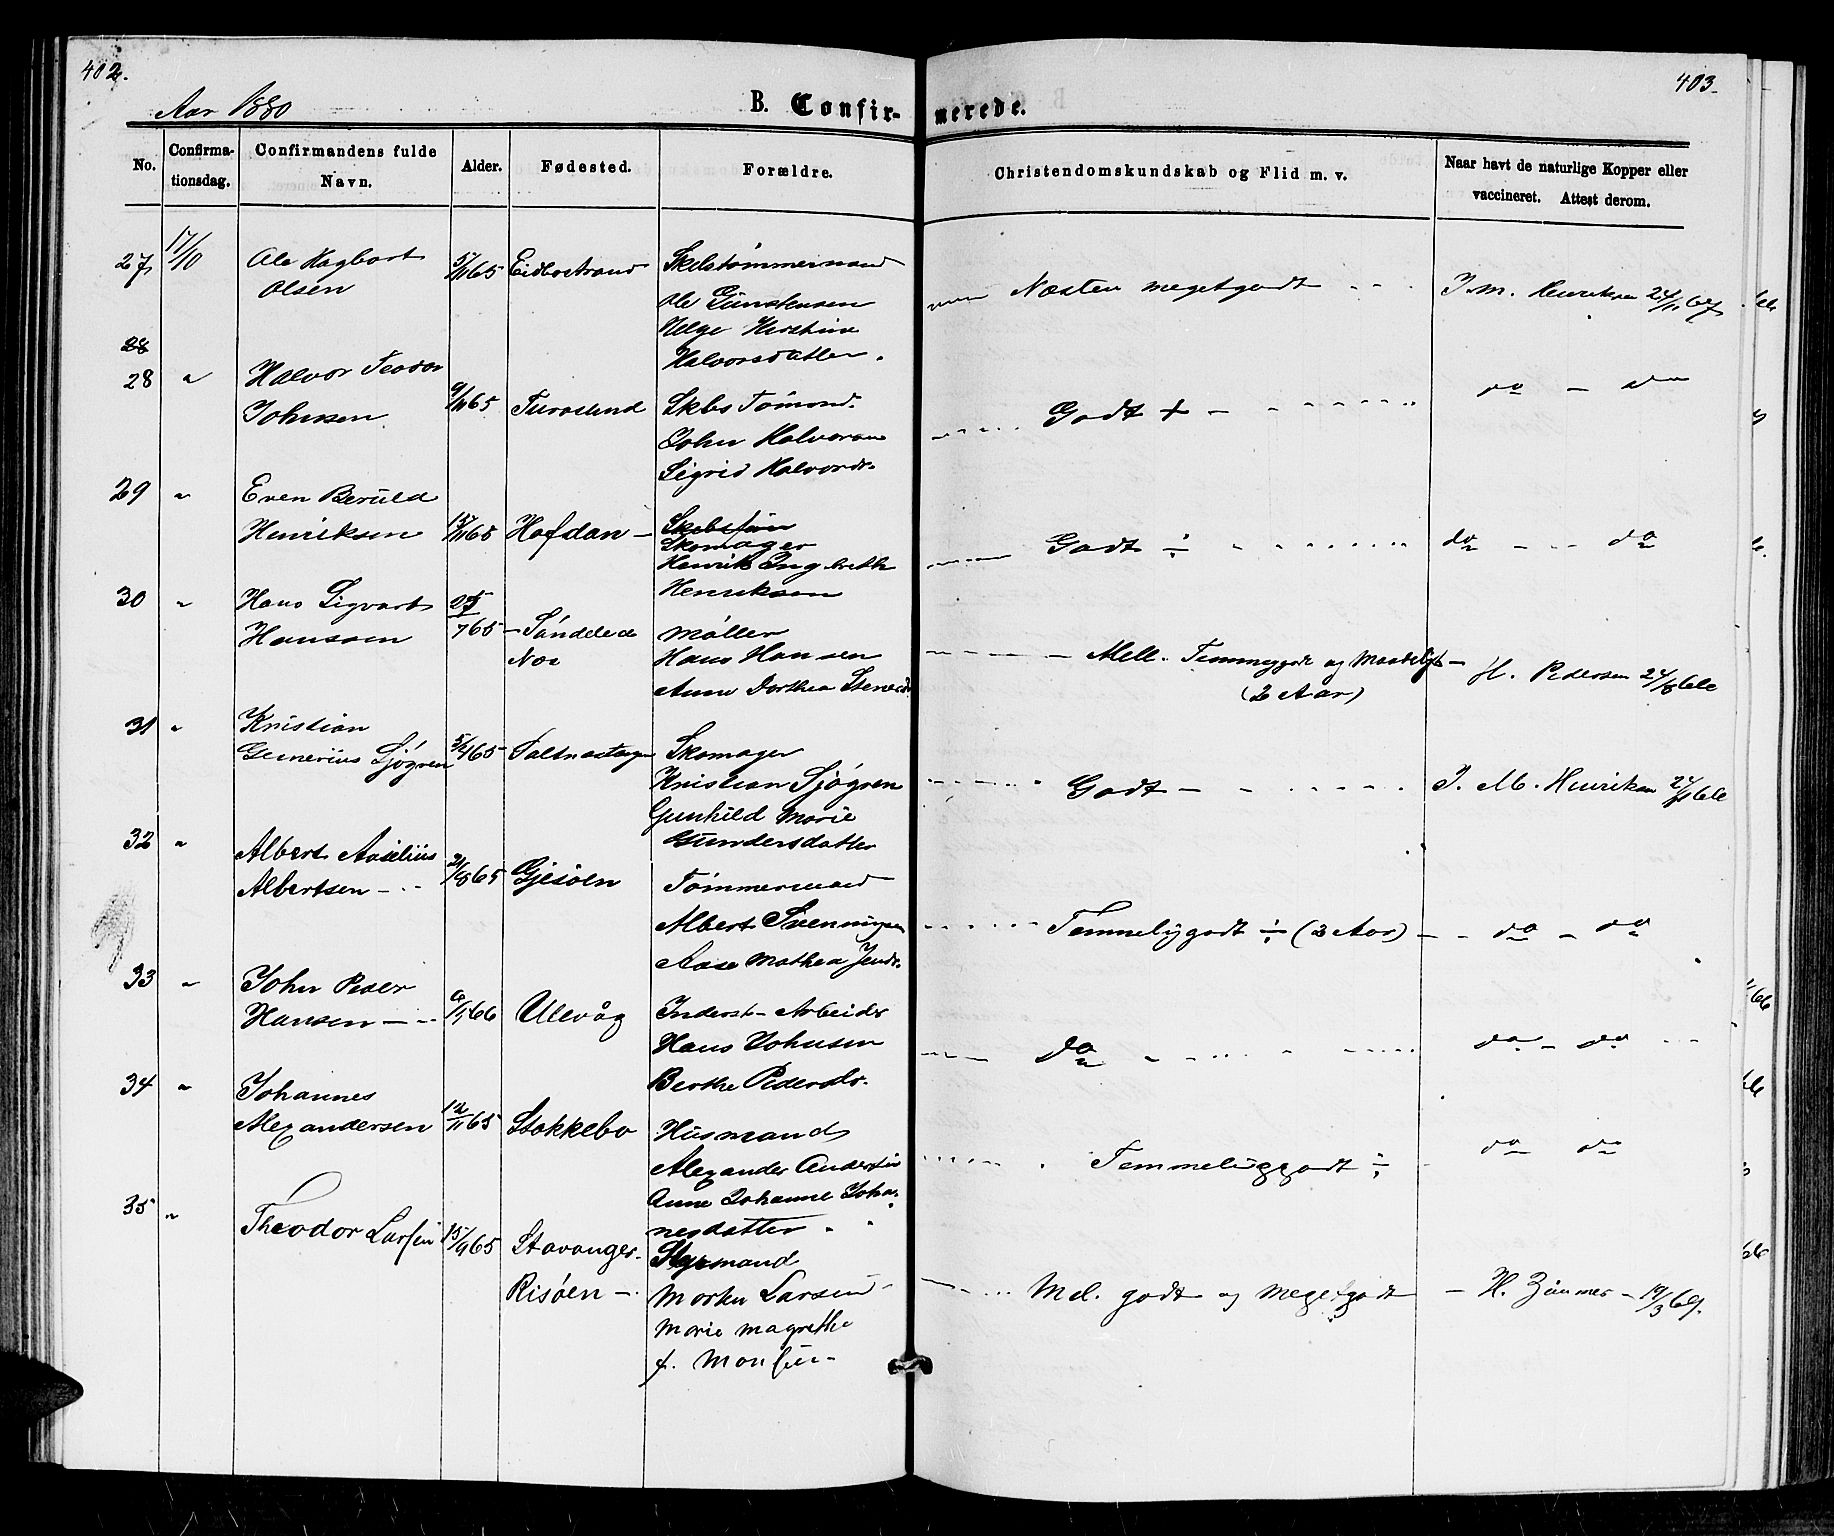 402.
403.
Aar 1880
B. Confir-
merede.
No.
Confirma-
tionsdag.
Confirmandens fulde
Navn.
Alder.
Fødested.
Forældre.
Christendomskundskab og Flid m. v.
Naar havt de naturlige Kopper eller
vaccineret. Attest derom.
27
17/10
Ole Hagbart
Olsen
5/11 65
Eidbostrand
Skibstømmermand
Ole
Helge Kirstine
Halvorsdatter.
Næsten megetgodt
J. M. Henriksen 24/11 67
28
28
"
Halvor Teodor
Johnsen
9/11 65
Skbs Tømmd.
John Halvorsen
Sigrid Halvorsdr.
Godt +
do - do
29
"
Even Beruld
Henriksen
15/11 65
Hafdan -
Skomager
Henrik Ingebreth
Henriksen
Godt ÷
do - - do
30
"
Hans Sigvart
Hanssen
25/7 65
- Søndeled
Næs
Møller
Hans Hansen
Anne Dorthea Stenersd.
- Mell. Temmeggodt og Maadeligt -
(2 Aar)
H. Pedersen 24/8 66
31
"
Kristian
Sjøgren
5/4 65
Skomager
Kristian Sjøgren
Gunhild Marie
Gundersdatter
Godt -
J. M. Henriksen 24/11 66
32
"
Albert Aaselius
Albertsen -
2/8 65
Gjesøen
Tømmermand
Albert Svenningsen
Aase Mathea Jensdr.
Temmeligodt ÷ (2 Aar) -
- do - do
33
"
John Peder
Hansen -
6/1 66
Ulevåg
Inderst - Arbeider
Hans Johnsen
Berthe Pedersdr.
do
do - do
34
"
Johannes
Alexandersen
12/11 65
Stokkebo
Husmand
Alexander Andersen
Anne Johanne Joha-
nesdatter
Temmeliggodt ÷
do do
35
"
Theodor Larsen
15/9 65
Stavanger
Risøen -
Styrmand
Morten Larsen
Marie Magrethe
f. Monsen -
Mel. godt og Megetgodt
- H. Zimmer - 19/3 69.